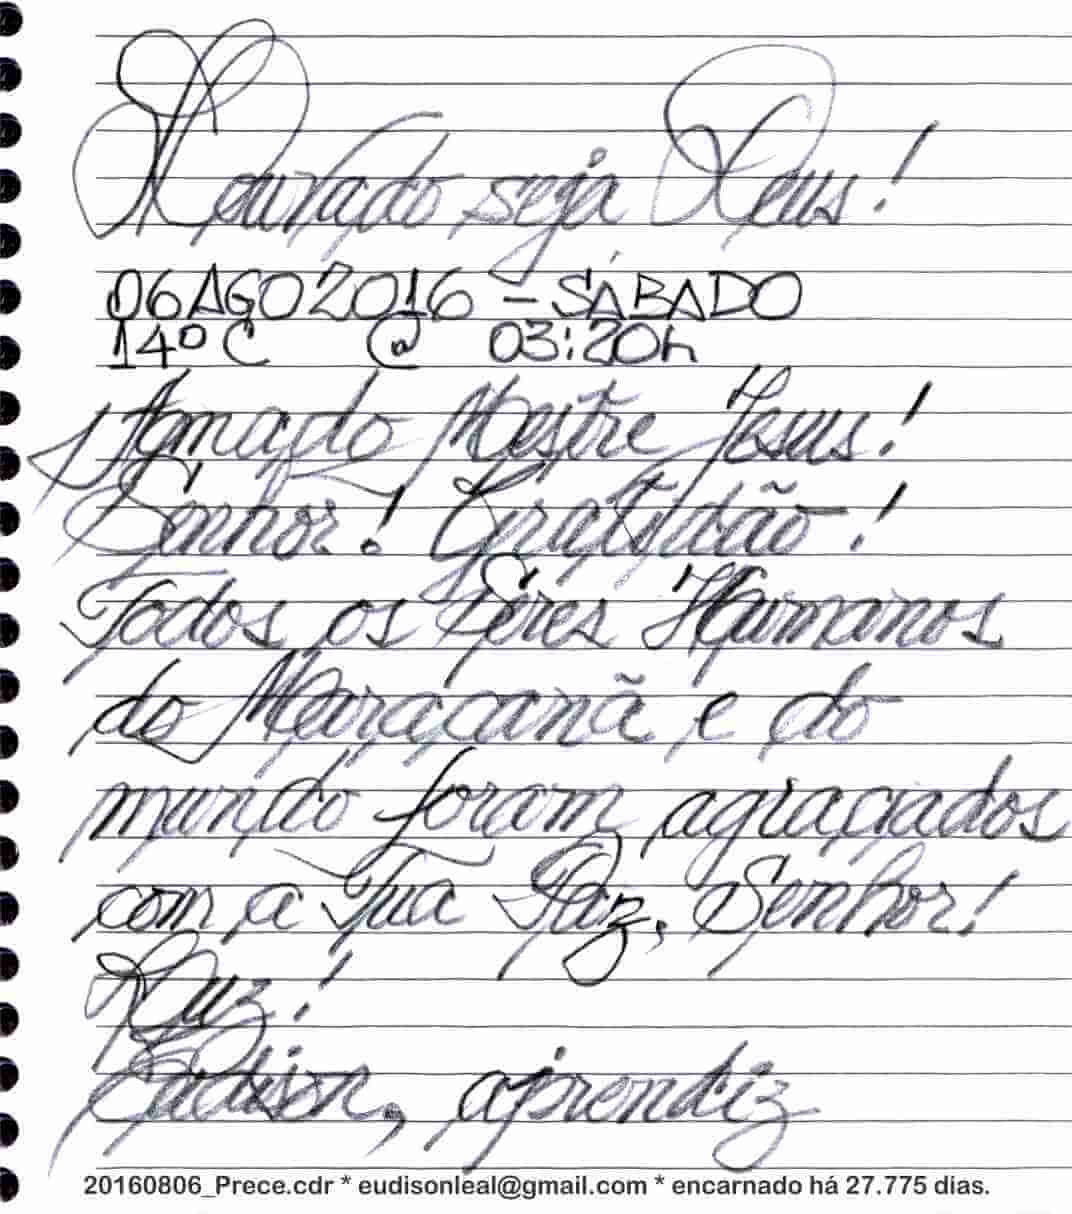 Louvado seja Deus!
06AGO2016 - SÁBADO
14º C @ 03:20h
Amado Mestre Jesus!
Senhor! Gratidão!
Todos os Seres Humanos
do Maracanã e do
mundo foram agraciados
com a Tua Paz, Senhor!
Luz!
Eudison, aprendiz
20160806_Prece.cdr * eudisonleal@gmail.com * encarnado há 27.775 dias.